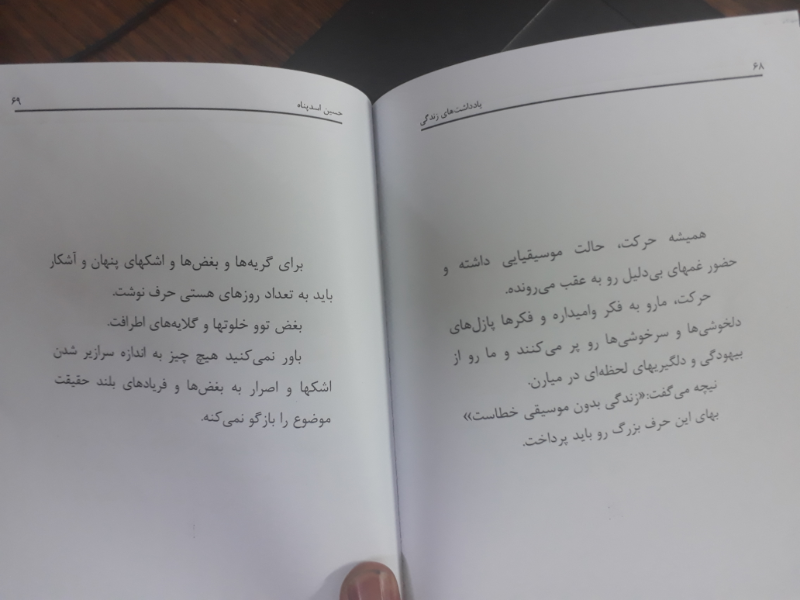 ۶۸
یادداشت‌های زندگی
همیشه حرکت، حالت موسیقیایی داشته و
حضور غمهای بی‌دلیل رو به عقب می‌رونده.
حرکت، مارو به فکر وامیداره و فکرها پازل‌های
دلخوشی‌ها و سرخوشی‌ها رو پر می‌کنند و ما رو از
بیهودگی و دلگیریهای لحظه‌ای در میارن.
نیچه می‌گفت:«زندگی بدون موسیقی خطاست»
بهای این حرف بزرگ رو باید پرداخت.
۶۹
حسین اسدپناه
برای گریه‌ها و بغض‌ها و اشکهای پنهان و آشکار
باید به تعداد روزهای هستی حرف نوشت.
بغض توو خلوتها و گلایه‌های اطرافت.
باور نمی‌کنید هیچ چیز به اندازه سرازیر شدن
اشکها و اصرار به بغض‌ها و فریادهای بلند حقیقت
موضوع را بازگو نمی‌کنه.